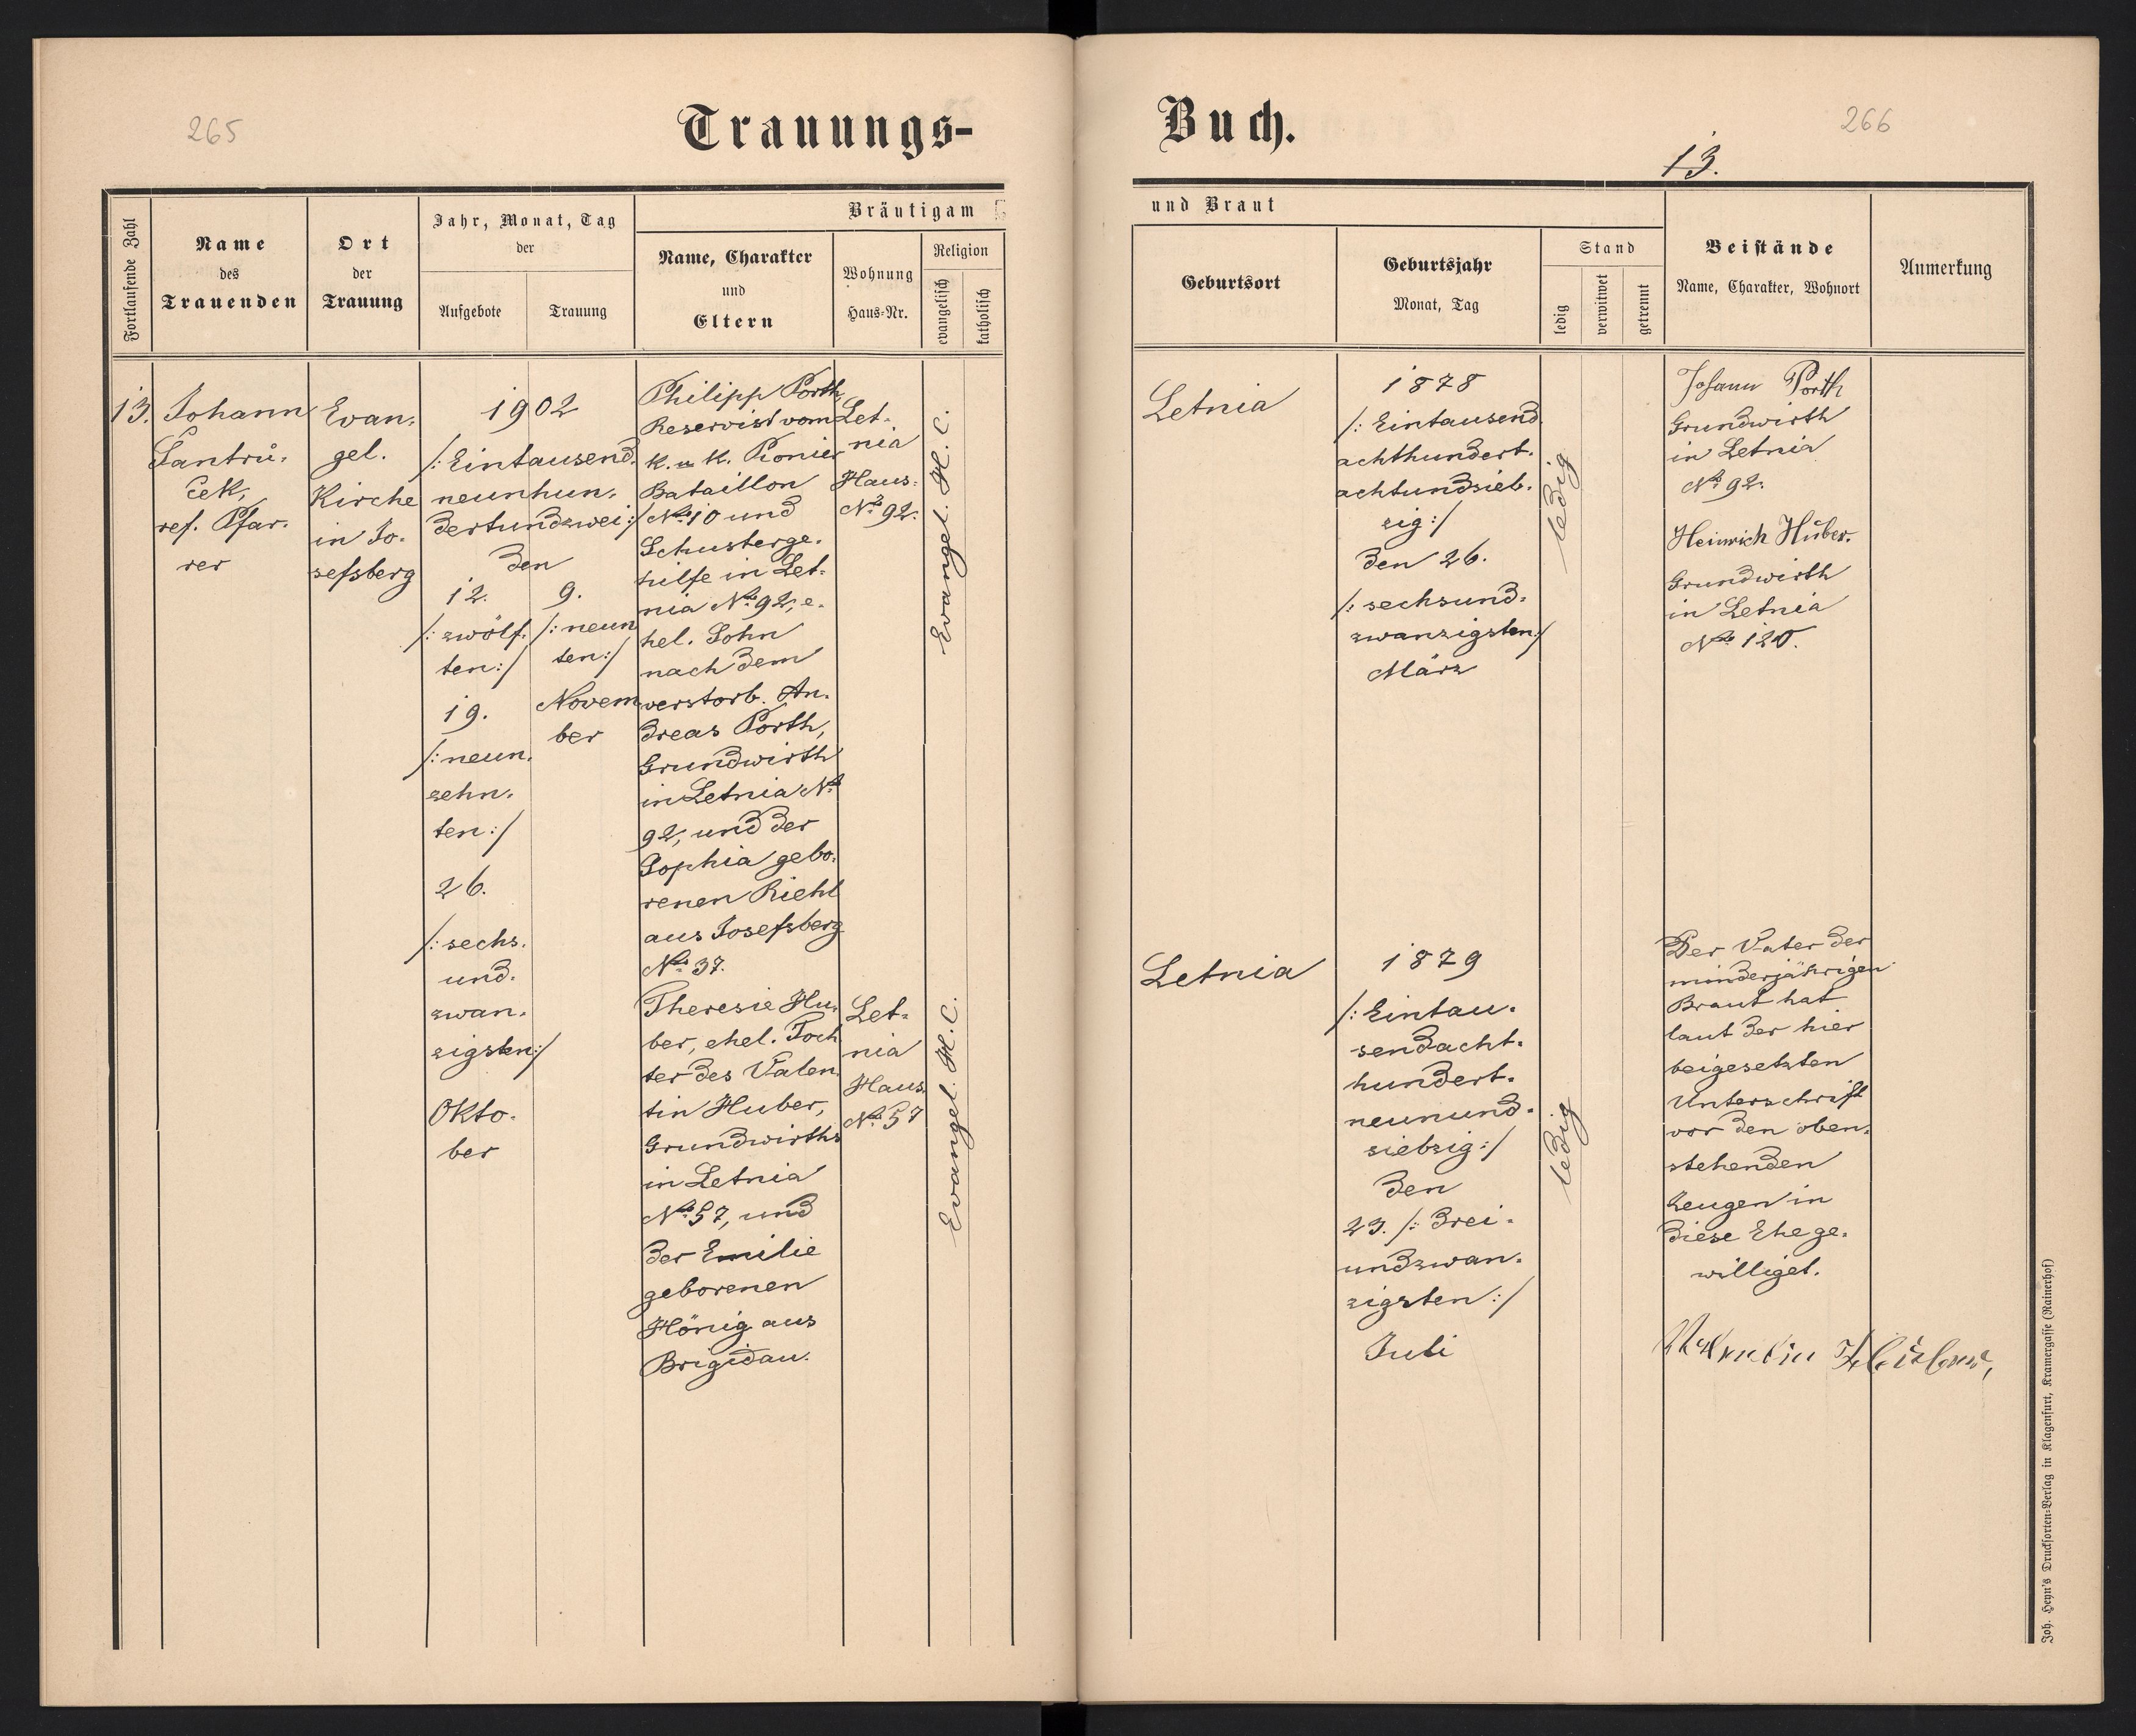 265
Trauungs-
Fortlaufende Zahl
Name
des
Trauenden
Ort
der
Trauung
Jahr, Monat, Tag
der
Aufgebote
Trauung
Bräutigam
Name, Charakter
und
Eltern
Wohnung
Haus-Nr.
Religion
evangelisch
katholisch
13.
Johann
Jantrů-
ček,
ref. Pfar-
rer
Evan-
gel.
Kirche
in Jo-
sefsberg
1902
/: Eintausend-
neunhun-
dertundzwei :/
den
12.
/: zwölf-
ten :/
19.
/: neun-
zehn-
ten :/
26.
/: sechs-
und-
zwan-
zigsten :/
Okto-
ber
9.
/: neun
ten :/
Novem
ber
Philipp Porth,
Reservist vom
k. u. k. Pionier
Bataillon
No 10 und
Schusterge-
hilfe in Let-
nia No 92, e-
hel. Sohn
nach dem
verstorb. An-
dreas Porth,
Grundwirth
in Letnia No
92, und der
Sophia gebo-
renen Riehl
aus Josefsberg
No 37.
Let-
nia
Haus-
No 92.
Evangel. H. C.
Theresie Hu-
ber, ehel. Toch
ter des Valen-
tin Huber,
Grundwirths
in Letnia
No 57, und
der Emilie
geborenen
Hönig aus
Brigidau.
Let-
nia
Haus-
No 57
Evangel. H. C.
Buch.
266
13.
und Braut
Geburtsort
Geburtsjahr
Monat, Tag
Stand
ledig
verwitwet
getrennt
Beistände
Name, Charakter, Wohnort
Anmerkung
Letnia
1878
/: Eintausend-
achthundert-
achtundsieb-
zig :/
den 26.
/: sechsund-
zwanzigsten :/
März
ledig
Johann Porth
Grundwirth
in Letnia
No 92.
Heinrich Huber.
Grundwirth
in Letnia
No 120.
Letnia
1879
/: Eintau-
sendacht-
hundert-
neunund-
siebzig :/
den
23. /: drei-
undzwan-
zigsten :/
Juli
ledig
Der Vater der
minderjährigen
Braut hat
laut der hier
beigesetzten
Unterschrift
vor den oben-
stehenden
Zeugen in
diese Ehe ge-
williget.
Joh. Heyn's Drucksorten-Verlag in Klagenfurt, Kramergasse (Rainerhof)